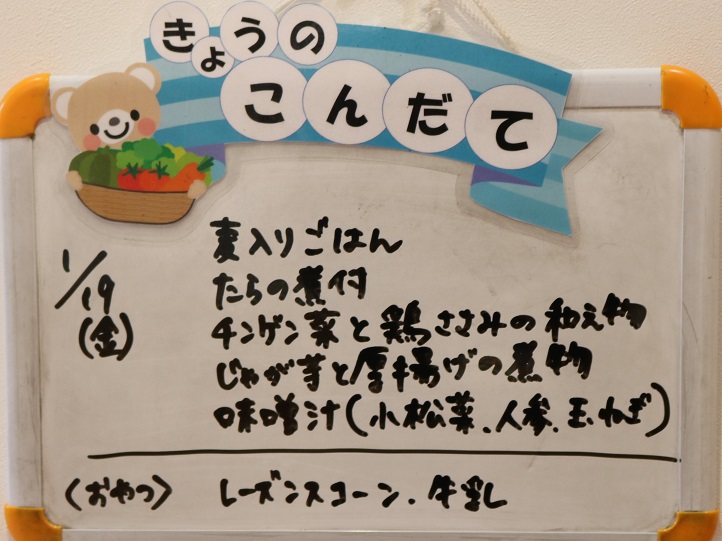 きょうの
こんだて
1/19
(金)
麦入りごはん
たらの煮付
チンゲン菜と鶏ささみの和え物
じゃが芋と厚揚げの煮物
味噌汁(小松菜、人参、玉ねぎ)
〈おやつ〉 レーズンスコーン、牛乳